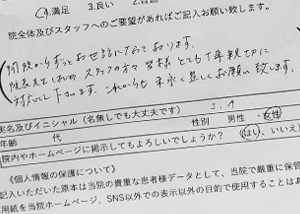 4.満足　3.良い　2.普通
院全体及びスタッフへのご要望があればご記入お願い致します。
開院からずっとお世話になっております。
院長先生はじめ スタッフの方々 皆様 とても丁寧 親切に
対応して下さいます。これからも 末永く 宜しくお願い致します。
実名及びイニシャル（名無しでも大丈夫です）
年齢　　代　　性別　男性・女性
院内やホームページに掲示してもよろしいでしょうか？　はい、いいえ
《個人情報の保護について》
記入いただいた原本は当院の貴重な患者様データとして、当院で厳重に保管
用紙を当院ホームページ、SNS以外での表示以外の目的で使用することはあ